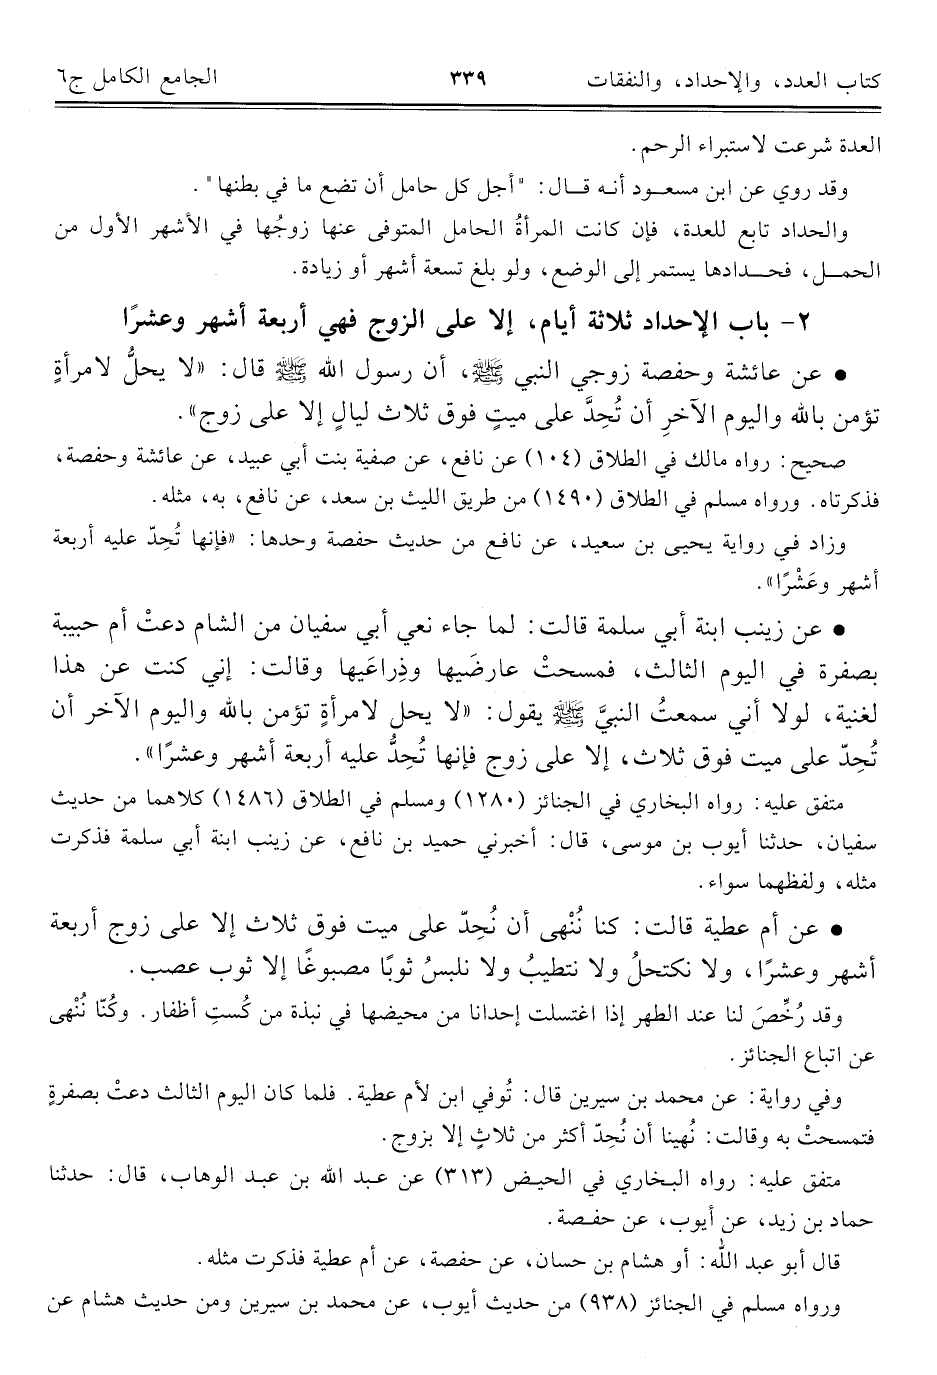 كتاب العدد، والإحداد، والنفقات ٣٣٩ الجامع الكامل ج٦
العدة شرعت لاستبراء الرحم.
وقد روي عن ابن مسعود أنه قال: "أجل كل حامل أن تضع ما في بطنها".
والحداد تابع للعدة، فإن كانت المرأةُ الحامل المتوفى عنها زوجُها في الأشهر الأول من
الحمل، فحدادها يستمر إلى الوضع، ولو بلغ تسعة أشهر أو زيادة.
٢- باب الإحداد ثلاثة أيام، إلا على الزوج فهي أربعة أشهر وعشرًا
• عن عائشة وحفصة زوجي النبي ﷺ، أن رسول الله ﷺ قال: «لا يحلُّ لامرأةٍ
تؤمن بالله واليوم الآخرِ أن تُحِدَّ على ميتٍ فوق ثلاث ليالٍ إلا على زوج».
صحيح: رواه مالك في الطلاق (١٠٤) عن نافع، عن صفية بنت أبي عبيد، عن عائشة وحفصة،
فذكرتاه. ورواه مسلم في الطلاق (١٤٩٠) من طريق الليث بن سعد، عن نافع، به، مثله.
وزاد في رواية يحيى بن سعيد، عن نافع من حديث حفصة وحدها: «فإنها تُحِدّ عليه أربعة
أشهر وعَشْرًا».
• عن زينب ابنة أبي سلمة قالت: لما جاء نعي أبي سفيان من الشام دعتْ أم حبيبة
بصفرة في اليوم الثالث، فمسحتْ عارضَيها وذِراعَيها وقالت: إني كنت عن هذا
لغنية، لولا أني سمعتُ النبيَّ ﷺ يقول: «لا يحل لامرأةٍ تؤمن بالله واليوم الآخر أن
تُحِدّ على ميت فوق ثلاث، إلا على زوج فإنها تُحِدُّ عليه أربعة أشهر وعشرًا».
متفق عليه: رواه البخاري في الجنائز (١٢٨٠) ومسلم في الطلاق (١٤٨٦) كلاهما من حديث
سفيان، حدثنا أيوب بن موسى، قال: أخبرني حميد بن نافع، عن زينب ابنة أبي سلمة فذكرت
مثله، ولفظهما سواء.
• عن أم عطية قالت: كنا نُنْهى أن نُحِدّ على ميت فوق ثلاث إلا على زوج أربعة
أشهر وعشرًا، ولا نكتحلُ ولا نتطيبُ ولا نلبسُ ثوبًا مصبوغًا إلا ثوب عصب.
وقد رُخِّصَ لنا عند الطهر إذا اغتسلت إحدانا من محيضها في نبذة من كُستِ أظفار. وكُنّا نُنْهى
عن اتباع الجنائز.
وفي رواية: عن محمد بن سيرين قال: تُوفي ابن لأم عطية. فلما كان اليوم الثالث دعتْ بصفرةٍ
فتمسحتْ به وقالت: نُهينا أن نُحِدّ أكثر من ثلاثٍ إلا بزوج.
متفق عليه: رواه البخاري في الحيض (٣١٣) عن عبد الله بن عبد الوهاب، قال: حدثنا
حماد بن زيد، عن أيوب، عن حفصة.
قال أبو عبد اللّه: أو هشام بن حسان، عن حفصة، عن أم عطية فذكرت مثله.
ورواه مسلم في الجنائز (٩٣٨) من حديث أيوب، عن محمد بن سيرين ومن حديث هشام عن